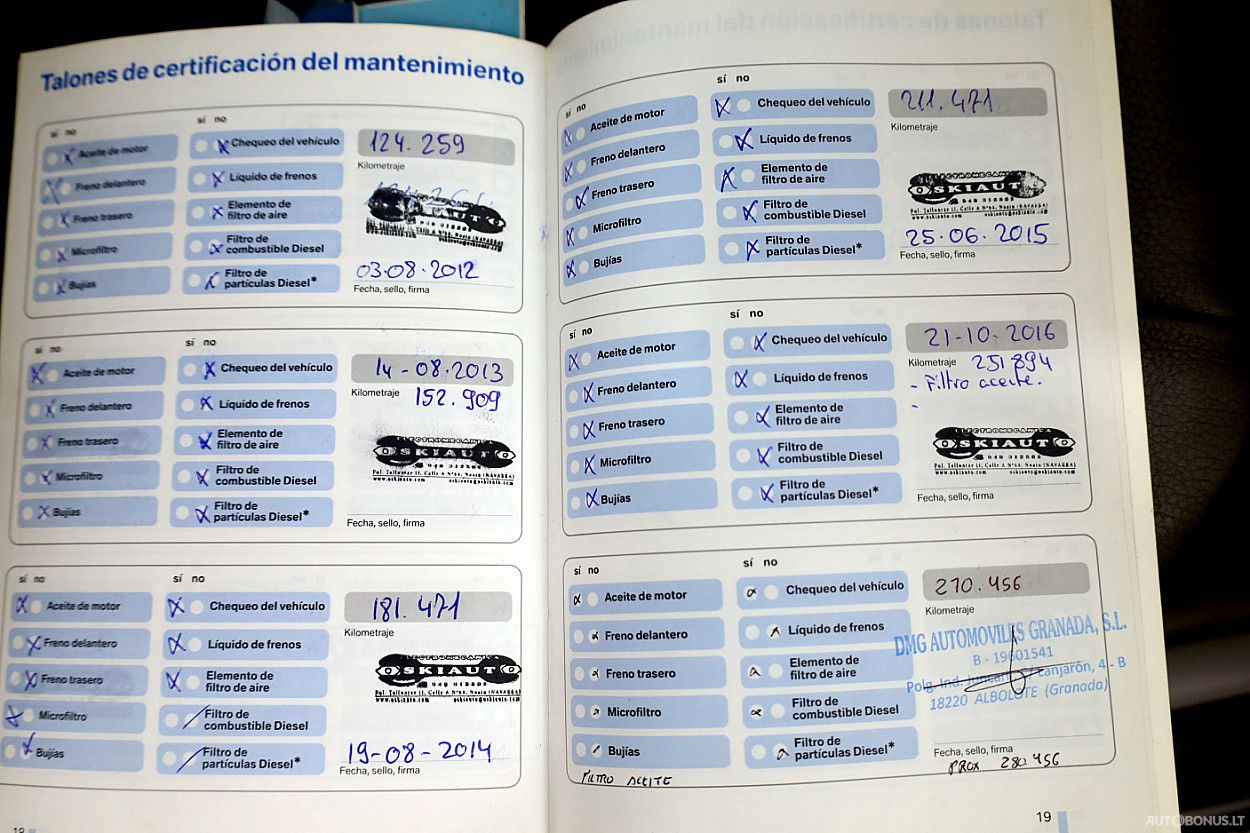 Talones de certificación del mantenimiento
sí no
sí no
Aceite de motor
Freno delantero
Freno trasero
Microfiltro
Bujías
Chequeo del vehículo
Líquido de frenos
Elemento de
filtro de aire
Filtro de
combustible Diesel
Filtro de
partículas Diesel*
124.259
Kilometraje
OSKIAUTO
03-08-2012
Fecha, sello, firma
sí no
sí no
Aceite de motor
Freno delantero
Freno trasero
Microfiltro
Bujías
Chequeo del vehículo
Líquido de frenos
Elemento de
filtro de aire
Filtro de
combustible Diesel
Filtro de
partículas Diesel*
14-08-2013
Kilometraje 152.909
ELECTROMECANICA
OSKIAUTO
Fecha, sello, firma
sí no
sí no
Aceite de motor
Freno delantero
Freno trasero
Microfiltro
Bujías
Chequeo del vehículo
Líquido de frenos
Elemento de
filtro de aire
Filtro de
combustible Diesel
Filtro de
partículas Diesel*
181.471
Kilometraje
ELECTROMECANICA
OSKIAUTO
19-08-2014
Fecha, sello, firma
sí no
sí no
Aceite de motor
Freno delantero
Freno trasero
Microfiltro
Bujías
Chequeo del vehículo
Líquido de frenos
Elemento de
filtro de aire
Filtro de
combustible Diesel
Filtro de
partículas Diesel*
211.471
Kilometraje
ELECTROMECANICA
OSKIAUTO
25.06.2015
Fecha, sello, firma
sí no
sí no
Aceite de motor
Freno delantero
Freno trasero
Microfiltro
Bujías
Chequeo del vehículo
Líquido de frenos
Elemento de
filtro de aire
Filtro de
combustible Diesel
Filtro de
partículas Diesel*
21-10-2016
Kilometraje 251894
- Filtro aceite.
-
ELECTROMECANICA
OSKIAUTO
Fecha, sello, firma
sí no
sí no
Aceite de motor
Freno delantero
Freno trasero
Microfiltro
Bujías
FILTRO ACEITE
Chequeo del vehículo
Líquido de frenos
Elemento de
filtro de aire
Filtro de
combustible Diesel
Filtro de
partículas Diesel*
270.456
Kilometraje
DMG AUTOMOVILES GRANADA, S.L.
B - 19601541
Polg. Ind. Juncaril C/ Lanjarón, 4 - B
18220 ALBOLOTE (Granada)
Fecha, sello, firma
PROX 280.456
19
AUTOBONUS.LT